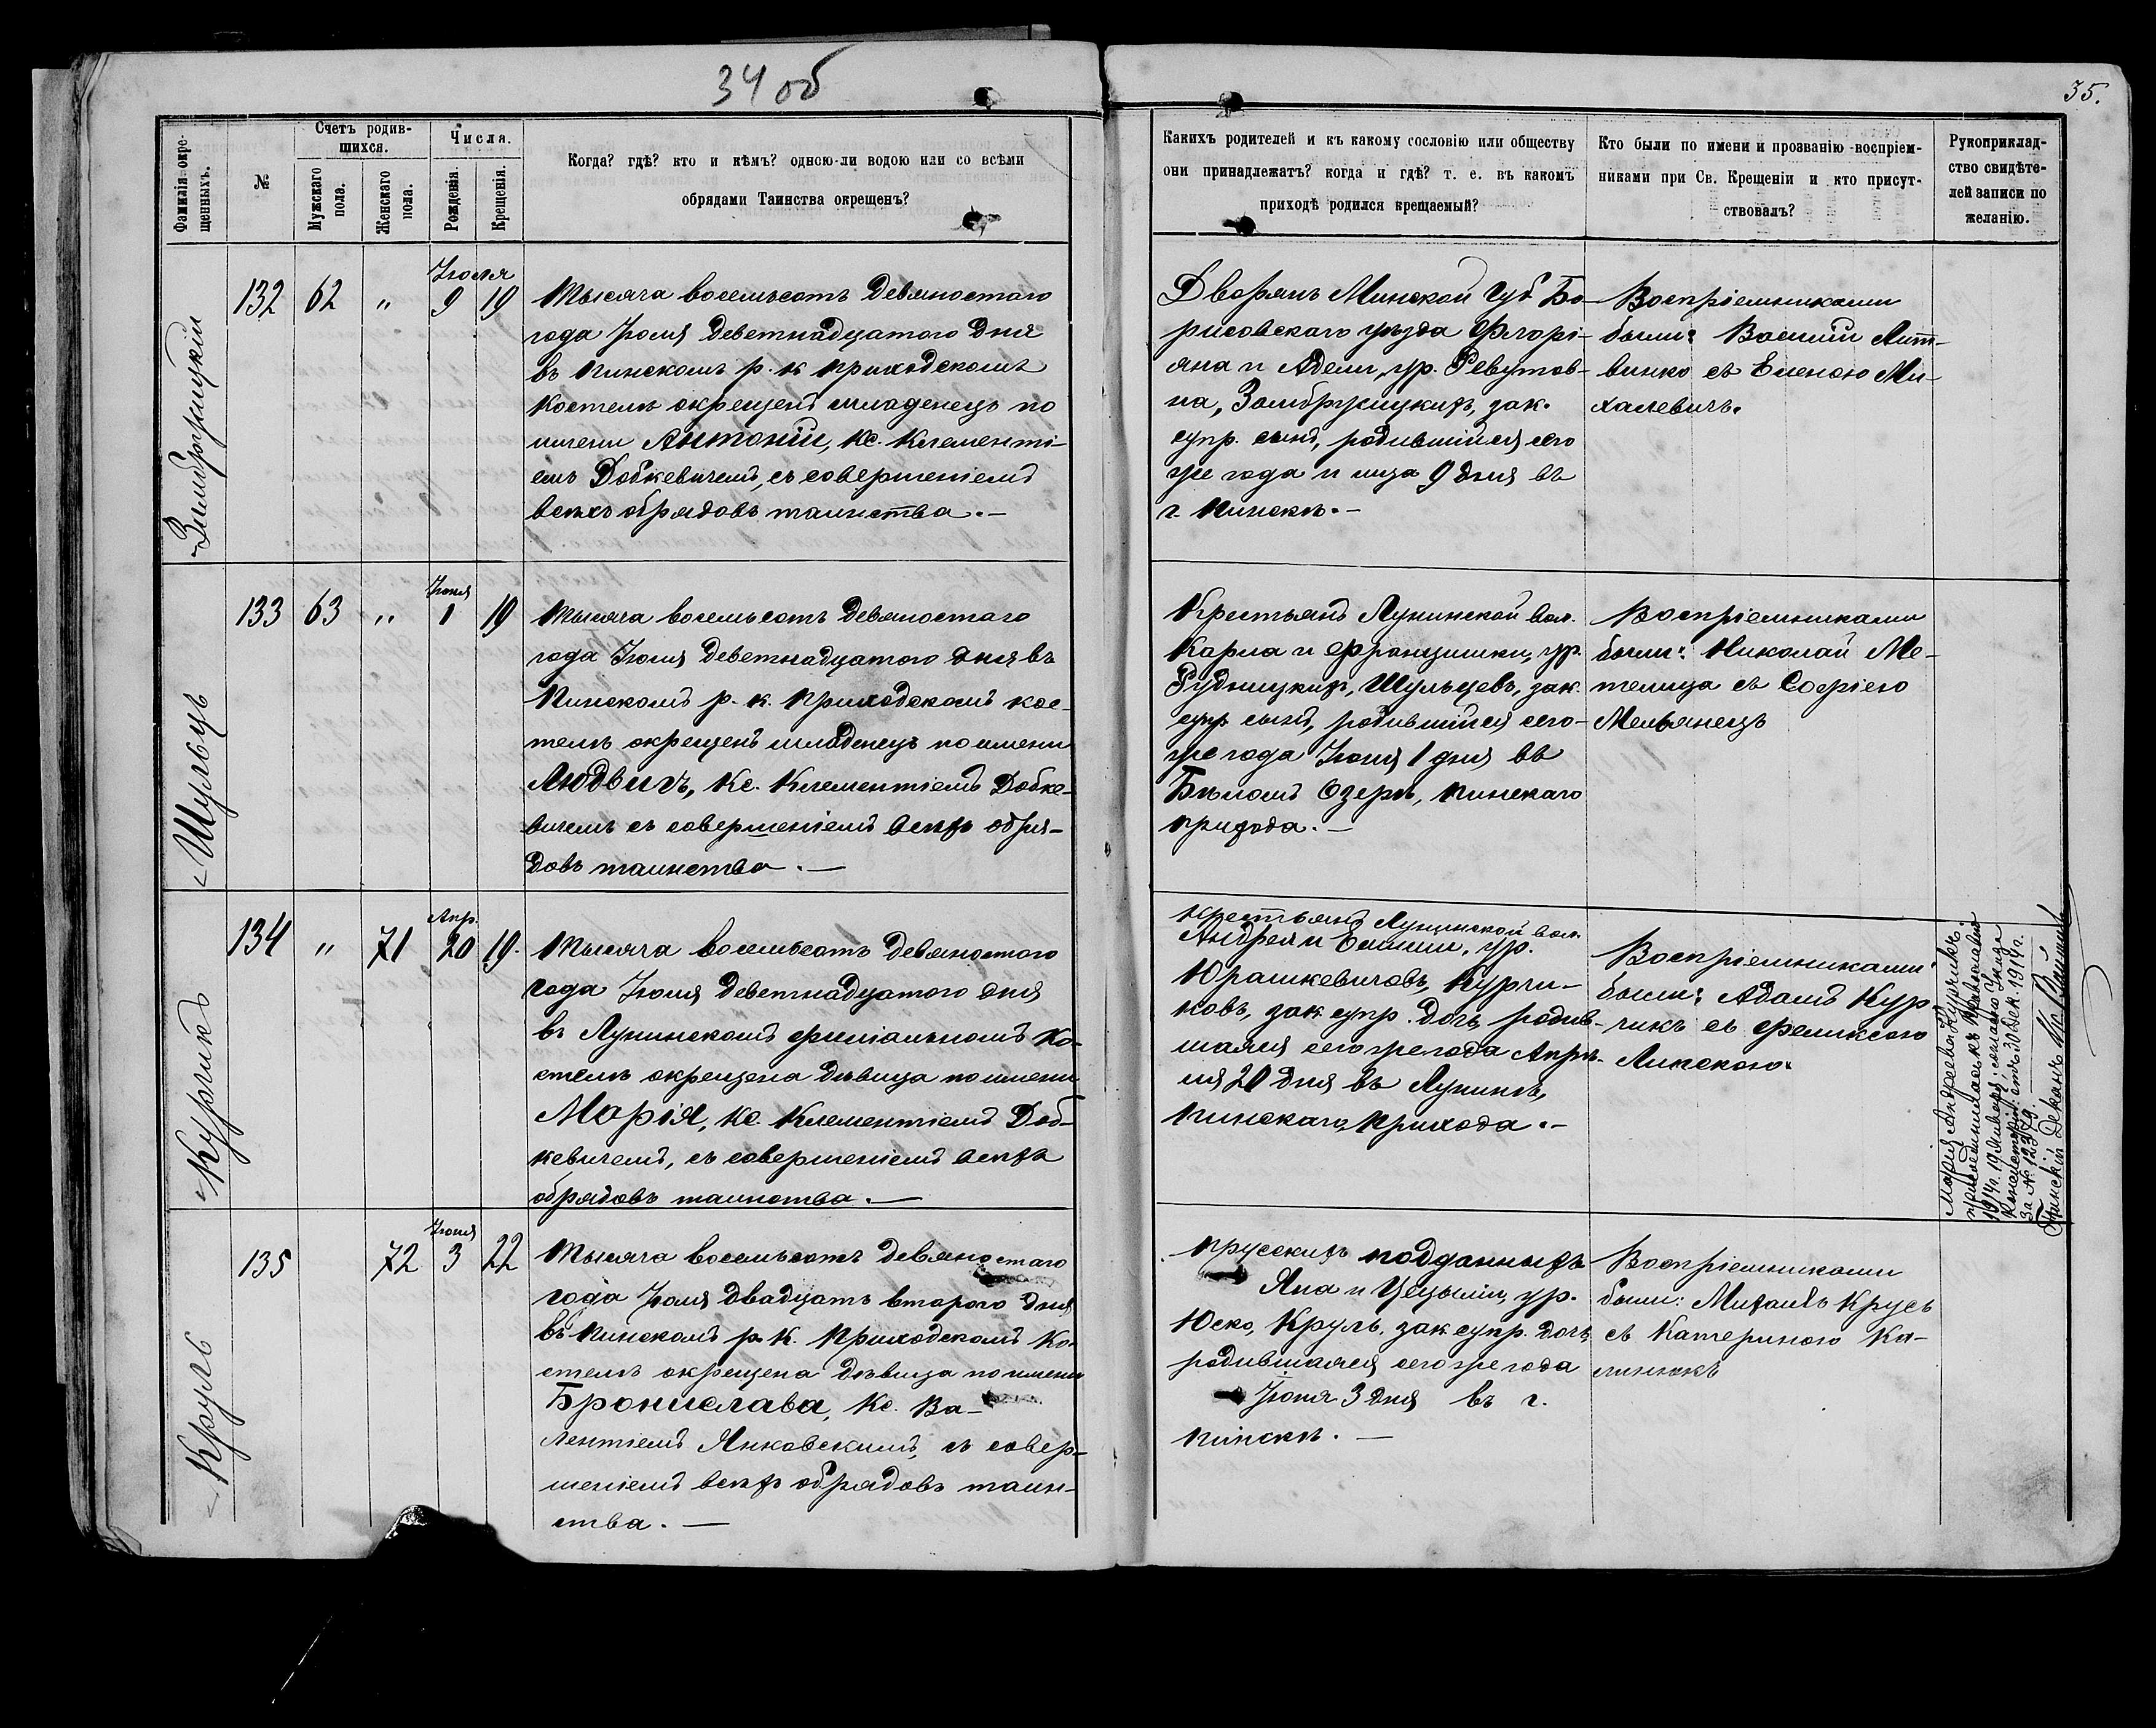 34 об
35.
Фамилія окре-
щенныхъ.
№
Счетъ родив-
шихся.
Мужскаго
пола.
Женскаго
пола.
Числа.
Рожденія.
Крещенія.
Когда? гдѣ? кто и кѣмъ? одною-ли водою или со всѣми
обрядами Таинства окрещенъ?
Какихъ родителей и къ какому сословію или обществу
они принадлежатъ? когда и гдѣ? т. е. въ какомъ
приходѣ родился крещаемый?
Кто были по имени и прозванію воспріем-
никами при Св. Крещеніи и кто присут-
ствовалъ?
Рукоприклад-
ство свидѣте-
лей записи по
желанію.
132 62 " Іюля 9 19
Тысяча восемьсотъ девяностаго
года Іюля деветнадцатого дня
въ Пинскомъ р. к приходскомъ
костелѣ окрещенъ младенецъ по
имени Антоній, кс. Клементі-
емъ Добкевичемъ, съ совершеніемъ
всѣхъ обрядовъ таинства. —
Дворянъ Минской Губ Бо-
рисовскаго уѣзда Флорі-
яна и Адели, ур. Ревутов-
на, зак.
супр. сынъ, родившійся сего
же года и мца 9 дня въ
г. Пинскѣ. —
Воспріемниками
были: Василій Лит-
винко съ Еленою Ми-
халевичъ.
Шульцъ
133 63 " Іюня 1 19
Тысяча восемьсотъ девяностаго
года Іюля деветнадцатого дня въ
Пинскомъ р. к. приходскомъ кос-
телѣ окрещенъ младенецъ по имени
Людвигъ, кс. Клементіемъ Добке-
вичемъ съ совершеніемъ всѣхъ обря-
довъ таинства. —
Крестьянъ Лунинской вол.
Карла и Францишки, ур.
Рудницкихъ, Шульцевъ, зак.
супр сынъ, родившійся сего-
же года Іюня 1 дня въ
Бѣломъ Озерѣ, Пинскаго
прихода. —
Воспріемниками
были: Николай Ме-
телица съ Софіею
Мельянецъ
Курчикъ
134 " 71 Апр. 20 19.
Тысяча восемьсотъ девяностого
года Іюля деветнадцатого дня
въ Лунинскомъ филіальномъ ко-
стелѣ окрещена дѣвица по имени
Марія, кс. Клементіемъ Доб-
кевичемъ, съ совершеніемъ всѣхъ
обрядовъ таинства. —
Крестьянъ Лунинской вол.
Андрея и ур.
Юрашкевичовъ, Курчи-
ковъ, зак супр. дочь, родив-
шаяся сего же года Апрѣ-
ля 20 дня въ Лунинѣ,
Пинскаго прихода. —
Воспріемниками
были: Адамъ Кур-
чикъ съ Феликсою
Липскою.
Марія Андреева Курчикъ
присоединилась къ
1914г. 19 Января: согласно Указа
Консисторіи отъ 30 дек. 1914 г.
за № 12379.
Пинскій Деканъ Кс.
Круль
135 72 Іюня 3 22
Тысяча восемьсотъ девяностаго
года Іюля двадцать второго дня
въ Пинскомъ р. к. приходскомъ ко-
стелѣ окрещена дѣвица по имени
Бронислава, кс. Ва-
лентіемъ Янковскимъ, съ совер-
шеніемъ всѣхъ обрядовъ таин-
ства. —
прусскихъ подданныхъ
Яна и Цецыліи, ур.
Юско, Круль, зак супр. дочь,
родившаяся сего же года
Іюня 3 дня въ г.
Пинскѣ. —
Воспріемниками
были: Михаилъ Крусь
съ Катериною Ка-
линюкъ